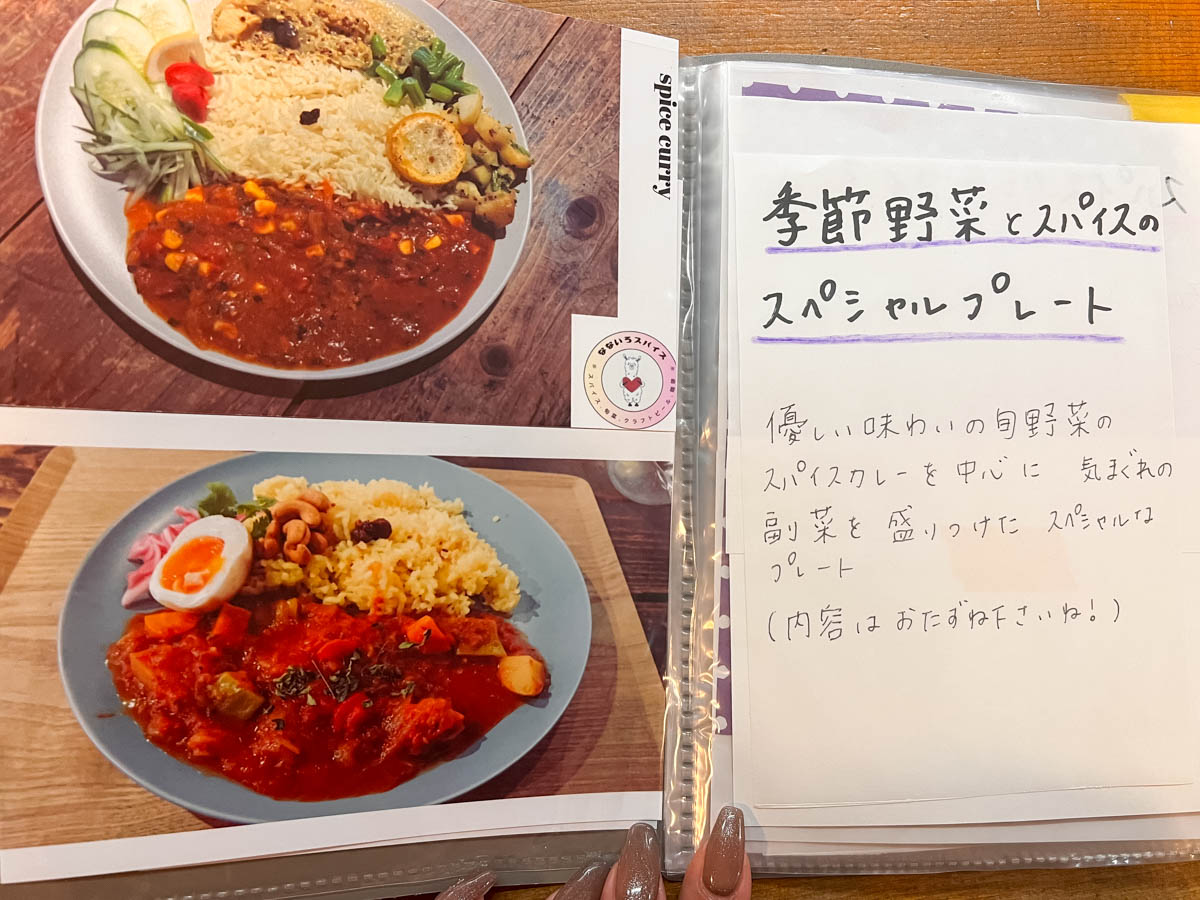 spice curry
なないろスパイス
季節野菜とスパイスの
スペシャルプレート
優しい味わいの旬野菜の
スパイスカレーを中心に 気まぐれの
副菜を盛りつけた スペシャルな
プレート
(内容はおたずね下さいね!)